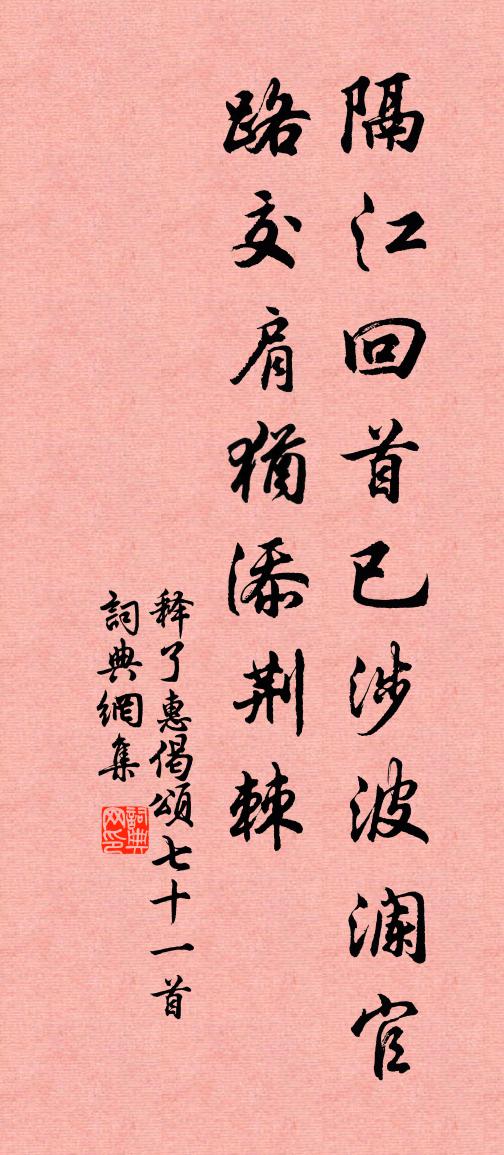 隔江回首已涉波澜官
路交肩犹添荆棘
释了惠偈颂七十一首
词典网集
词典网印